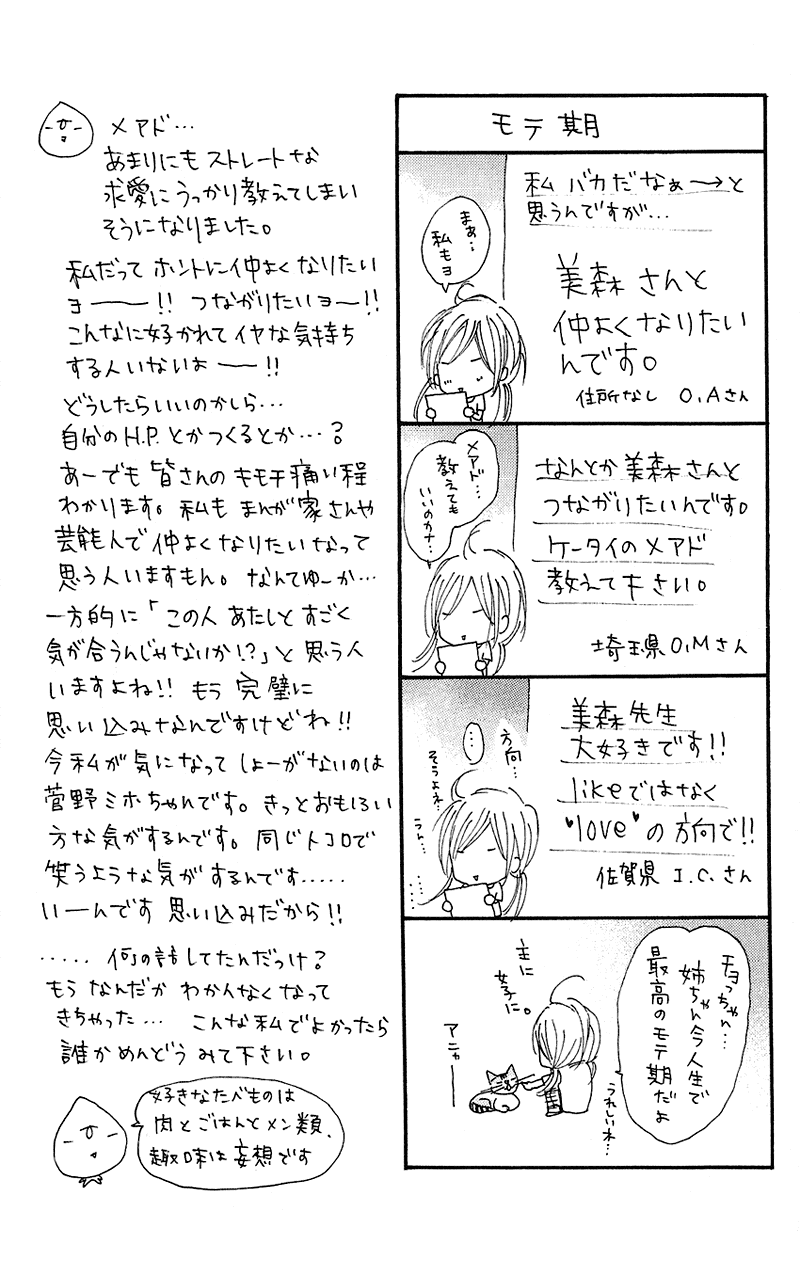 モテ期
私 バカだなぁ〜→と
思うんですが…
美森さんと
仲よくなりたい
んです。
住所なし O.Aさん
まぁ…
私もヨ
なんとか美森さんと
つながりたいんです。
ケータイのメアド
教えて下さい。
埼玉県O.Mさん
メアド…
教えても
いいのカナ…
美森先生
大好きです!!
likeではなく
"love"の方向で!!
佐賀県 I.C.さん
方向…
…
そうよネ…
うん…
……
チョっちゃん…
姉ちゃん今人生で
最高のモテ期だよ
うれしいネ…
主に
女子に。
アニャー
メアド…
あまりにもストレートな
求愛にうっかり教えてしまい
そうになりました。
私だって ホントに仲よくなりたい
ヨーー!! つながりたいヨー!!
こんなに好かれてイヤな気持ち
する人いないよーー!!
どうしたらいいのかしら…
自分のH.P.とかつくるとか…?
あーでも皆さんのキモチ痛い程
わかります。私も まんが家さんや
芸能人で仲よくなりたいなって
思う人いますもん。なんてゆーか…
一方的に「この人 あたしとすごく
気が合うんじゃないか!?」と思う人
いますよね!! もう 完璧に
思い込みなんですけどね!!
今私が気になってしょーがないのは
菅野ミホちゃんです。きっとおもしろい
方な気がするんです。同じトコロで
笑うような気がするんです.....
いーんです 思い込みだから!!
..... 何の話してたんだっけ?
もう なんだか わかんなくなって
きちゃった… こんな私でよかったら
誰かめんどうみて下さい。
好きなたべものは
肉とごはんとメン類、
趣味は妄想です